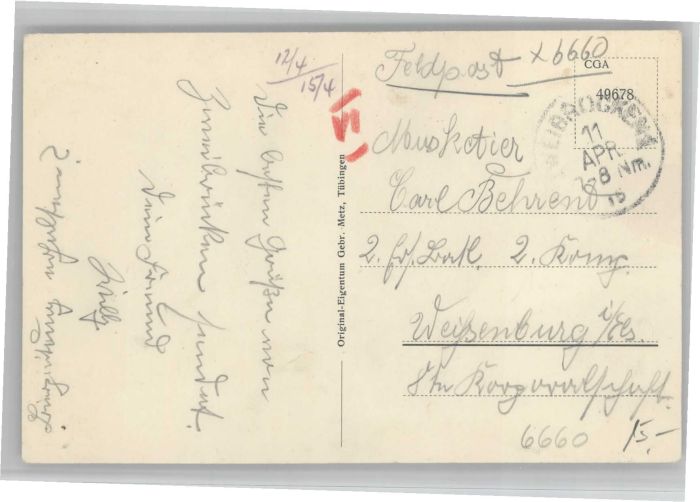 12/4
15/4
Die besten Grüße von
Zweibrücken sendet
Dein Freund
Willy
Original-Eigentum Gebr. Metz, Tübingen
Feldpost
x 6660
CGA
49678
ZWEIBRÜCKEN
11
APR
7-8 Nm.
15
Musketier
Carl Behrend
2. Ers. Batl. 2. Komp.
Weißenburg i/Els.
8te Korporalschaft.
6660
15,-